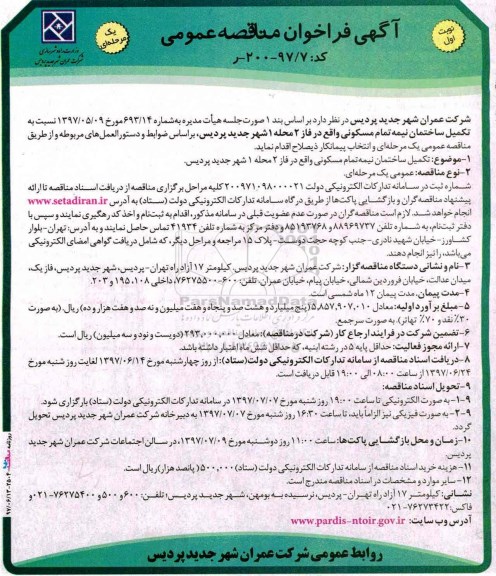 آگهی فراخوان مناقصه عمومی
کد: ۹۷/۷-۲۰۰-ر
نوبت اول
یک مرحله‌ای
وزارت راه و شهرسازی
شرکت عمران شهر جدید پردیس
شرکت عمران شهر جدید پردیس در نظر دارد بر اساس بند ۱ صورت جلسه هیأت مدیره به شماره ۶۹۳/۱۴ مورخ ۱۳۹۷/۰۵/۰۹ نسبت به
تکمیل ساختمان نیمه تمام مسکونی واقع در فاز ۲ محله ۱ شهر جدید پردیس، براساس ضوابط و دستورالعمل‌های مربوطه و از طریق
مناقصه عمومی یک مرحله‌ای و انتخاب پیمانکار ذیصلاح اقدام نماید.
۱-موضوع: تکمیل ساختمان نیمه تمام مسکونی واقع در فاز ۲ محله ۱ شهر جدید پردیس.
۲-نوع مناقصه: عمومی یک مرحله‌ای.
شماره ثبت در سامانه تدارکات الکترونیکی دولت ۲۰۰۹۷۱۰۹۸۰۰۰۰۲۱ کلیه مراحل برگزاری مناقصه از دریافت اسناد مناقصه تا ارائه
پیشنهاد مناقصه گران و بازگشایی پاکت‌ها از طریق درگاه سامانه تدارکات الکترونیکی دولت (ستاد) به آدرس www.setadiran.ir
انجام خواهد شد. لازم است مناقصه گران در صورت عدم عضویت قبلی در سامانه مذکور، اقدام به ثبت‌نام و اخذ کد رهگیری نمایند و سپس با
دفتر ثبت‌نام، به شماره تلفن ۸۸۹۶۹۷۳۷ و ۸۵۱۹۳۷۶۸ و دفتر مرکز به شماره تلفن ۴۱۹۳۴ تماس حاصل نمایند و به آدرس: تهران-بلوار
کشاورز- خیابان شهید نادری- جنب کوچه حجت دوست- پلاک ۱۵ مراجعه و مراحل دیگر، که شامل دریافت گواهی امضای الکترونیکی
می‌باشد، را نیز انجام دهند.
۳-نام و نشانی دستگاه مناقصه‌گزار: شرکت عمران شهر جدید پردیس. کیلومتر ۱۷ آزاد راه تهران-پردیس، شهر جدید پردیس، فاز یک،
میدان عدالت، خیابان فروردین شمالی، خیابان پیام، خیابان عمران. تلفن: ۶۰۰-۷۶۲۷۵۵۰۰، داخلی ۱۰۸، ۱۹۵ و ۲۰۳.
۴-مدت پیمان: مدت پیمان ۱۲ ماه شمسی است.
۵-مبلغ برآورد اولیه: معادل ۵,۸۵۷,۹۰۷,۰۱۰ (پنج میلیارد و هشت صد و پنجاه و هفت میلیون و نه صد و هفت هزار و ده) ریال. (به صورت
۳۰٪ نقد و ۷۰٪ تهاتر). به صورت سرجمع.
۶-تضمین شرکت در فرایند ارجاع کار (شرکت در مناقصه): معادل ۲۹۳,۰۰۰,۰۰۰ (دویست و نود و سه میلیون) ریال است.
۷-ارائه مجوز فعالیت: حداقل پایه ۵ در رشته ابنیه، که حداقل شش ماه اعتبار داشته باشد.
۸-دریافت اسناد مناقصه از سامانه تدارکات الکترونیکی دولت (ستاد): از روز چهارشنبه مورخ ۱۳۹۷/۰۶/۱۴ لغایت روز شنبه مورخ
۱۳۹۷/۰۶/۲۴ از ساعت ۰۸:۰۰ الی ۱۹:۰۰ قابل دریافت است.
۹-تحویل اسناد مناقصه:
۹-۱- به صورت الکترونیکی تا ساعت ۱۹:۰۰ روز شنبه مورخ ۱۳۹۷/۰۷/۰۷ در سامانه تدارکات الکترونیکی دولت (ستاد) بارگزاری شود.
۹-۲- به صورت فیزیکی نیز الزاماً باید، تا ساعت ۱۶:۳۰ روز شنبه مورخ ۱۳۹۷/۰۷/۰۷ به دبیرخانه شرکت عمران شهر جدید پردیس تحویل
گردد.
۱۰-زمان و محل بازگشایی پاکت‌ها: ساعت ۱۱:۰۰ روز دوشنبه مورخ ۱۳۹۷/۰۷/۰۹، در سالن اجتماعات شرکت عمران شهر جدید
پردیس است.
۱۱-هزینه خرید اسناد مناقصه از سامانه تدارکات الکترونیکی دولت (ستاد) ۵۰۰,۰۰۰ (پانصد هزار) ریال است.
۱۲-سایر موارد و مشخصات در اسناد مناقصه مندرج است.
نشانی: کیلومتر ۱۷ آزاد راه تهران-پردیس، نرسیده به بومهن، شهر جدید پردیس؛ تلفن: ۶۰۰ و ۵۰۰ و ۷۶۲۷۵۴۰۰-۰۲۱ و
فاکس: ۷۶۲۷۳۴۲۲-۰۲۱
آدرس وب سایت: www.pardis-ntoir.gov.ir
روابط عمومی شرکت عمران شهر جدید پردیس
ParsNamadData